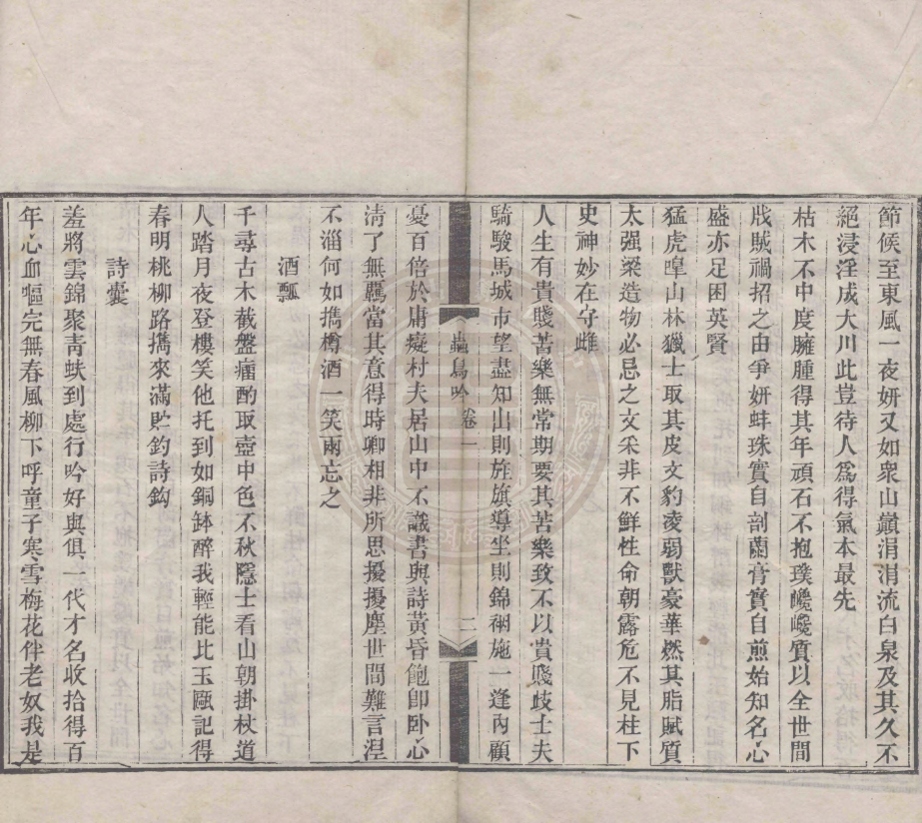 節候至東風一夜妍又如衆山巓涓涓流白泉及其久不
絕浸淫成大川此豈待人爲得氣本最先
枯木不中度臃腫得其年頑石不抱璞巉巉質以全世間
戕賊禍招之由爭妍蚌珠實自剖蘭膏實自煎始知名心
盛亦足困英賢
猛虎嘷山林獵士取其皮文豹凌弱獸豪華燃其脂賦質
太强梁造物必忌之文采非不鮮性命朝露危不見柱下
史神妙在守雌
人生有貴賤苦樂無常期要其苦樂致不以貴賤歧士夫
騎駿馬城市望盡知山則旌旗導坐則錦裀施一逢內顧
蟲鳥吟 卷一 二
憂百倍於庸癡村夫居山中不識書與詩黃昏飽卽卧心
淸了無羈當其意得時卿相非所思擾擾塵世間難言涅
不淄何如攜樽酒一笑兩忘之
酒瓢
千尋古木截盤癭酌取壺中色不秋隱士看山朝掛杖道
人踏月夜登樓笑他托到如銅缽醉我輕能比玉甌記得
春明桃柳路攜來滿貯釣詩鈎
詩囊
羞將雲錦聚靑蚨到處行吟好與俱一代才名收拾得百
年心血嘔完無春風柳下呼童子寒雪梅花伴老奴我是